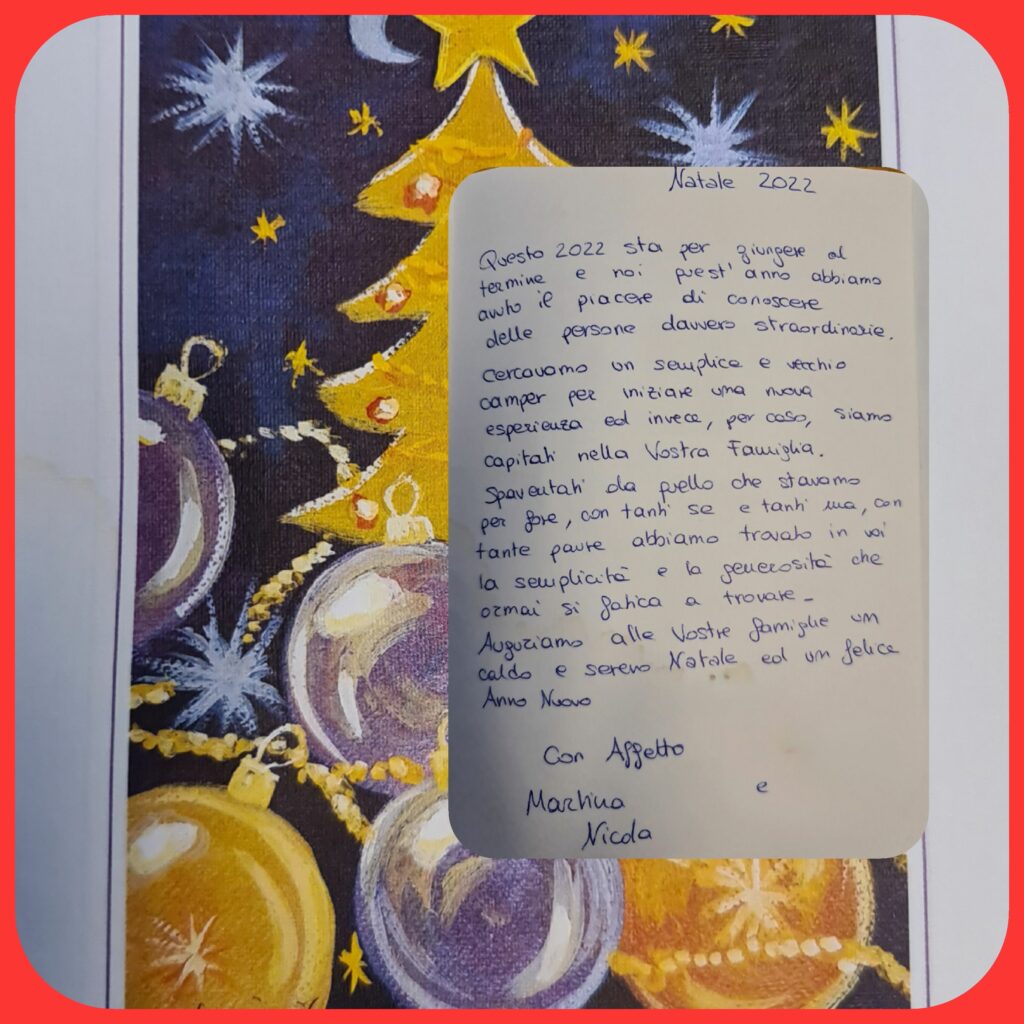 Natale 2022
Questo 2022 sta per giungere al
termine e noi quest'anno abbiamo
avuto il piacere di conoscere
delle persone davvero straordinarie.
Cercavamo un semplice e vecchio
camper per iniziare una nuova
esperienza ed invece, per caso, siamo
capitati nella Vostra Famiglia.
Spaventati da quello che stavamo
per fare, con tanti se e tanti ma, con
tante paure abbiamo trovato in voi
la semplicità e la generosità che
ormai si fatica a trovare.
Auguriamo alle Vostre famiglie un
caldo e sereno Natale ed un felice
Anno Nuovo
Con Affetto
Martina e
Nicola